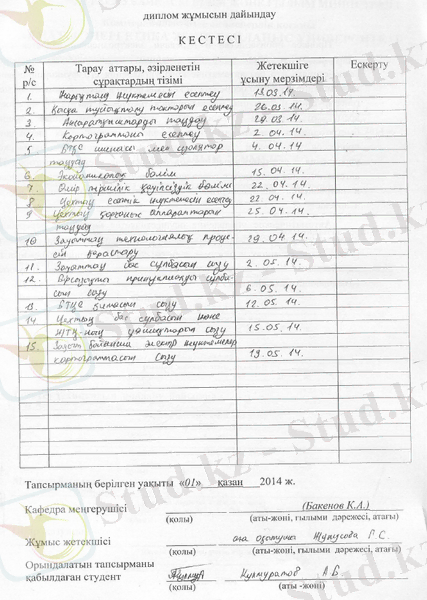 диплом жұмысын дайындау
КЕСТЕСІ
№ р/с
Тарау аттары, әзірленетін сұрақтардың тізімі
Жетекшіге ұсыну мерзімдері
Ескерту
1. есептеу 13.03.14.
2. Қысқа тұйықталу тоқтарын есептеу 26.03.14.
3. Аппараттарды таңдау 29.03.14.
4. Картограмманы есептеу 2.04.14.
5 шинасы мен изолятор 4.04.14
таңдау
6. Экономикалық бөлім 15.04.14.
7. Өмір тіршілік қауіпсіздік бөлімі 22.04.14.
8 Цехтың есептеу 22.04.14.
9 Цехтың қорғаныс аппараттарын 25.04.14.
таңдау
10 Зауыттың технологиялық проце- 29.04.14.
сін қарастыру
11. Зауыттың бас сұлбасын сызу 2.05.14.
12. принципиалды сұлба-
сын сызу 6.05.14.
13 сызу 12.05.14.
14 Цехтың бас сұлбасы және
сызу 15.05.14.
15. Зауыт бойынша электр жүктемелер
картограммасын сызу 19.05.14.
Тапсырманың берілген уақыты «01» қазан 2014 ж.
Кафедра меңгерушісі (Бакенов К.А.)
(қолы) (аты-жөні, ғылыми дәрежесі, атағы)
Жұмыс жетекшісі аға оқытушы Г.С.
(қолы) (аты-жөні, ғылыми дәрежесі, атағы)
Орындалатын тапсырманы
қабылдаған студент Нұлмуратов А.Б.
(қолы) (аты -жөні)
Stud.kz